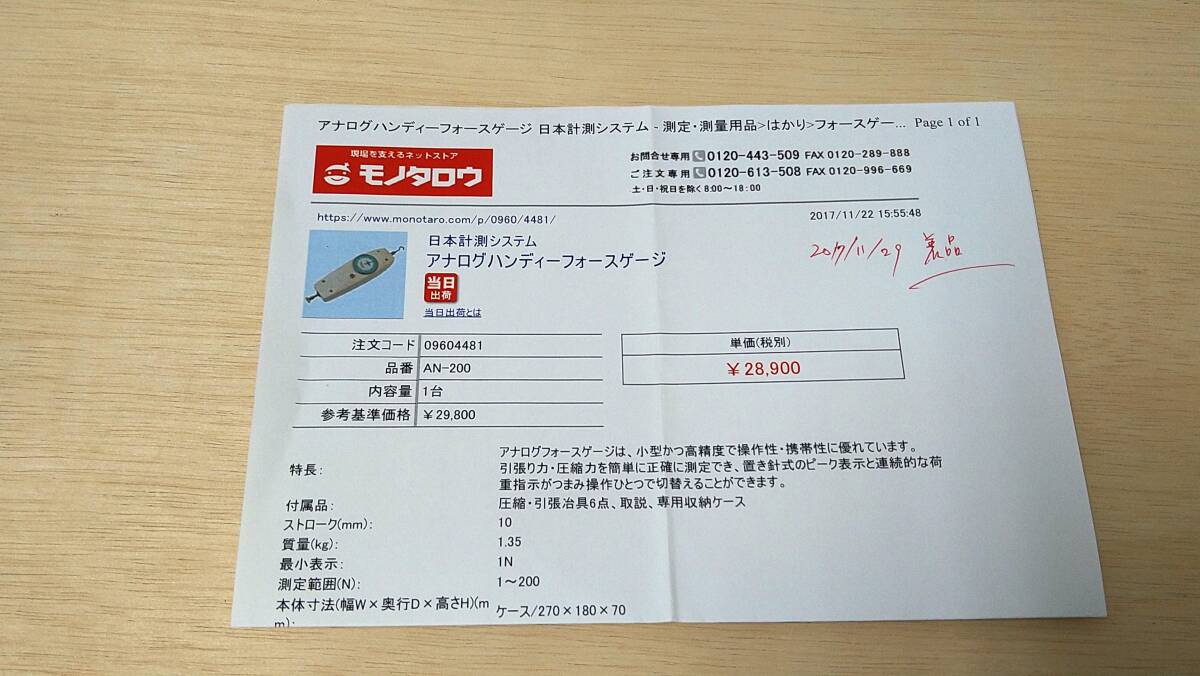 アナログハンディーフォースゲージ 日本計測システム - 測定・測量用品>はかり>フォースゲー... Page 1 of 1
現場を支えるネットストア
モノタロウ
お問合せ専用 0120-443-509 FAX 0120-289-888
ご注文専用 0120-613-508 FAX 0120-996-669
土・日・祝日を除く 8:00～18:00
https://www.monotaro.com/p/0960/4481/
2017/11/22 15:55:48
2017/11/29 着品
日本計測システム
アナログハンディーフォースゲージ
当日
出荷
当日出荷とは
注文コード 09604481
品番 AN-200
内容量 1台
参考基準価格 ￥29,800
単価(税別)
￥28,900
特長:
アナログフォースゲージは、小型かつ高精度で操作性・携帯性に優れています。
引張り力・圧縮力を簡単に正確に測定でき、置き針式のピーク表示と連続的な荷
重指示がつまみ操作ひとつで切替えることができます。
付属品: 圧縮・引張冶具6点、取説、専用収納ケース
ストローク(mm): 10
質量(kg): 1.35
最小表示: 1N
測定範囲(N): 1～200
本体寸法(幅W×奥行D×高さH)(m
m): ケース/270×180×70